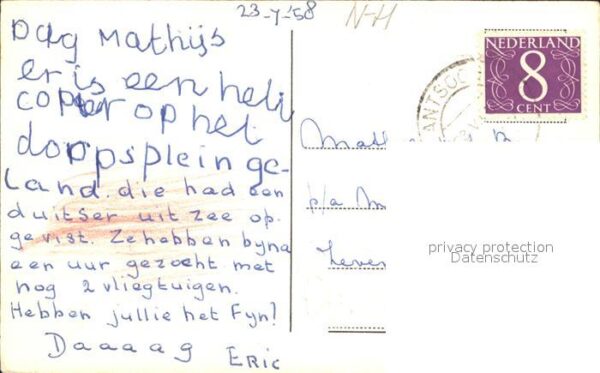 23-7-'58
N-H
Dag Mathijs
er is een heli
copter op het
dorpsplein ge-
land. die had een
duitser uit zee op-
gevist. Ze hebben byna
een uur gezocht met
nog 2 vliegtuigen.
Hebben jullie het Fyn?
Daaaag ERIC
NEDERLAND
8
CENT
p/a
privacy protection
Datenschutz